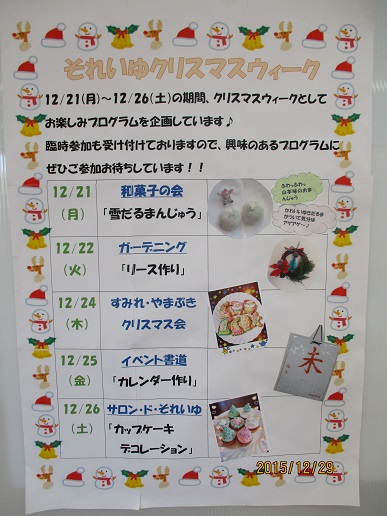 それいゆクリスマスウィーク
12/21(月)～12/26(土)の期間、クリスマスウィークとして
お楽しみプログラムを企画しています♪
臨時参加も受け付けておりますので、興味のあるプログラムに
ぜひご参加お待ちしています！！
12/21
(月)
和菓子の会
「雪だるまんじゅう」
ふわっふわっ
山芋味のおま
んじゅう
12/22
(火)
ガーデニング
「リース作り」
12/24
(木)
すみれ・やまぶき
クリスマス会
12/25
(金)
イベント書道
「カレンダー作り」
未
12/26
(土)
サロン・ド・それいゆ
「カップケーキ
デコレーション」
2015/12/29